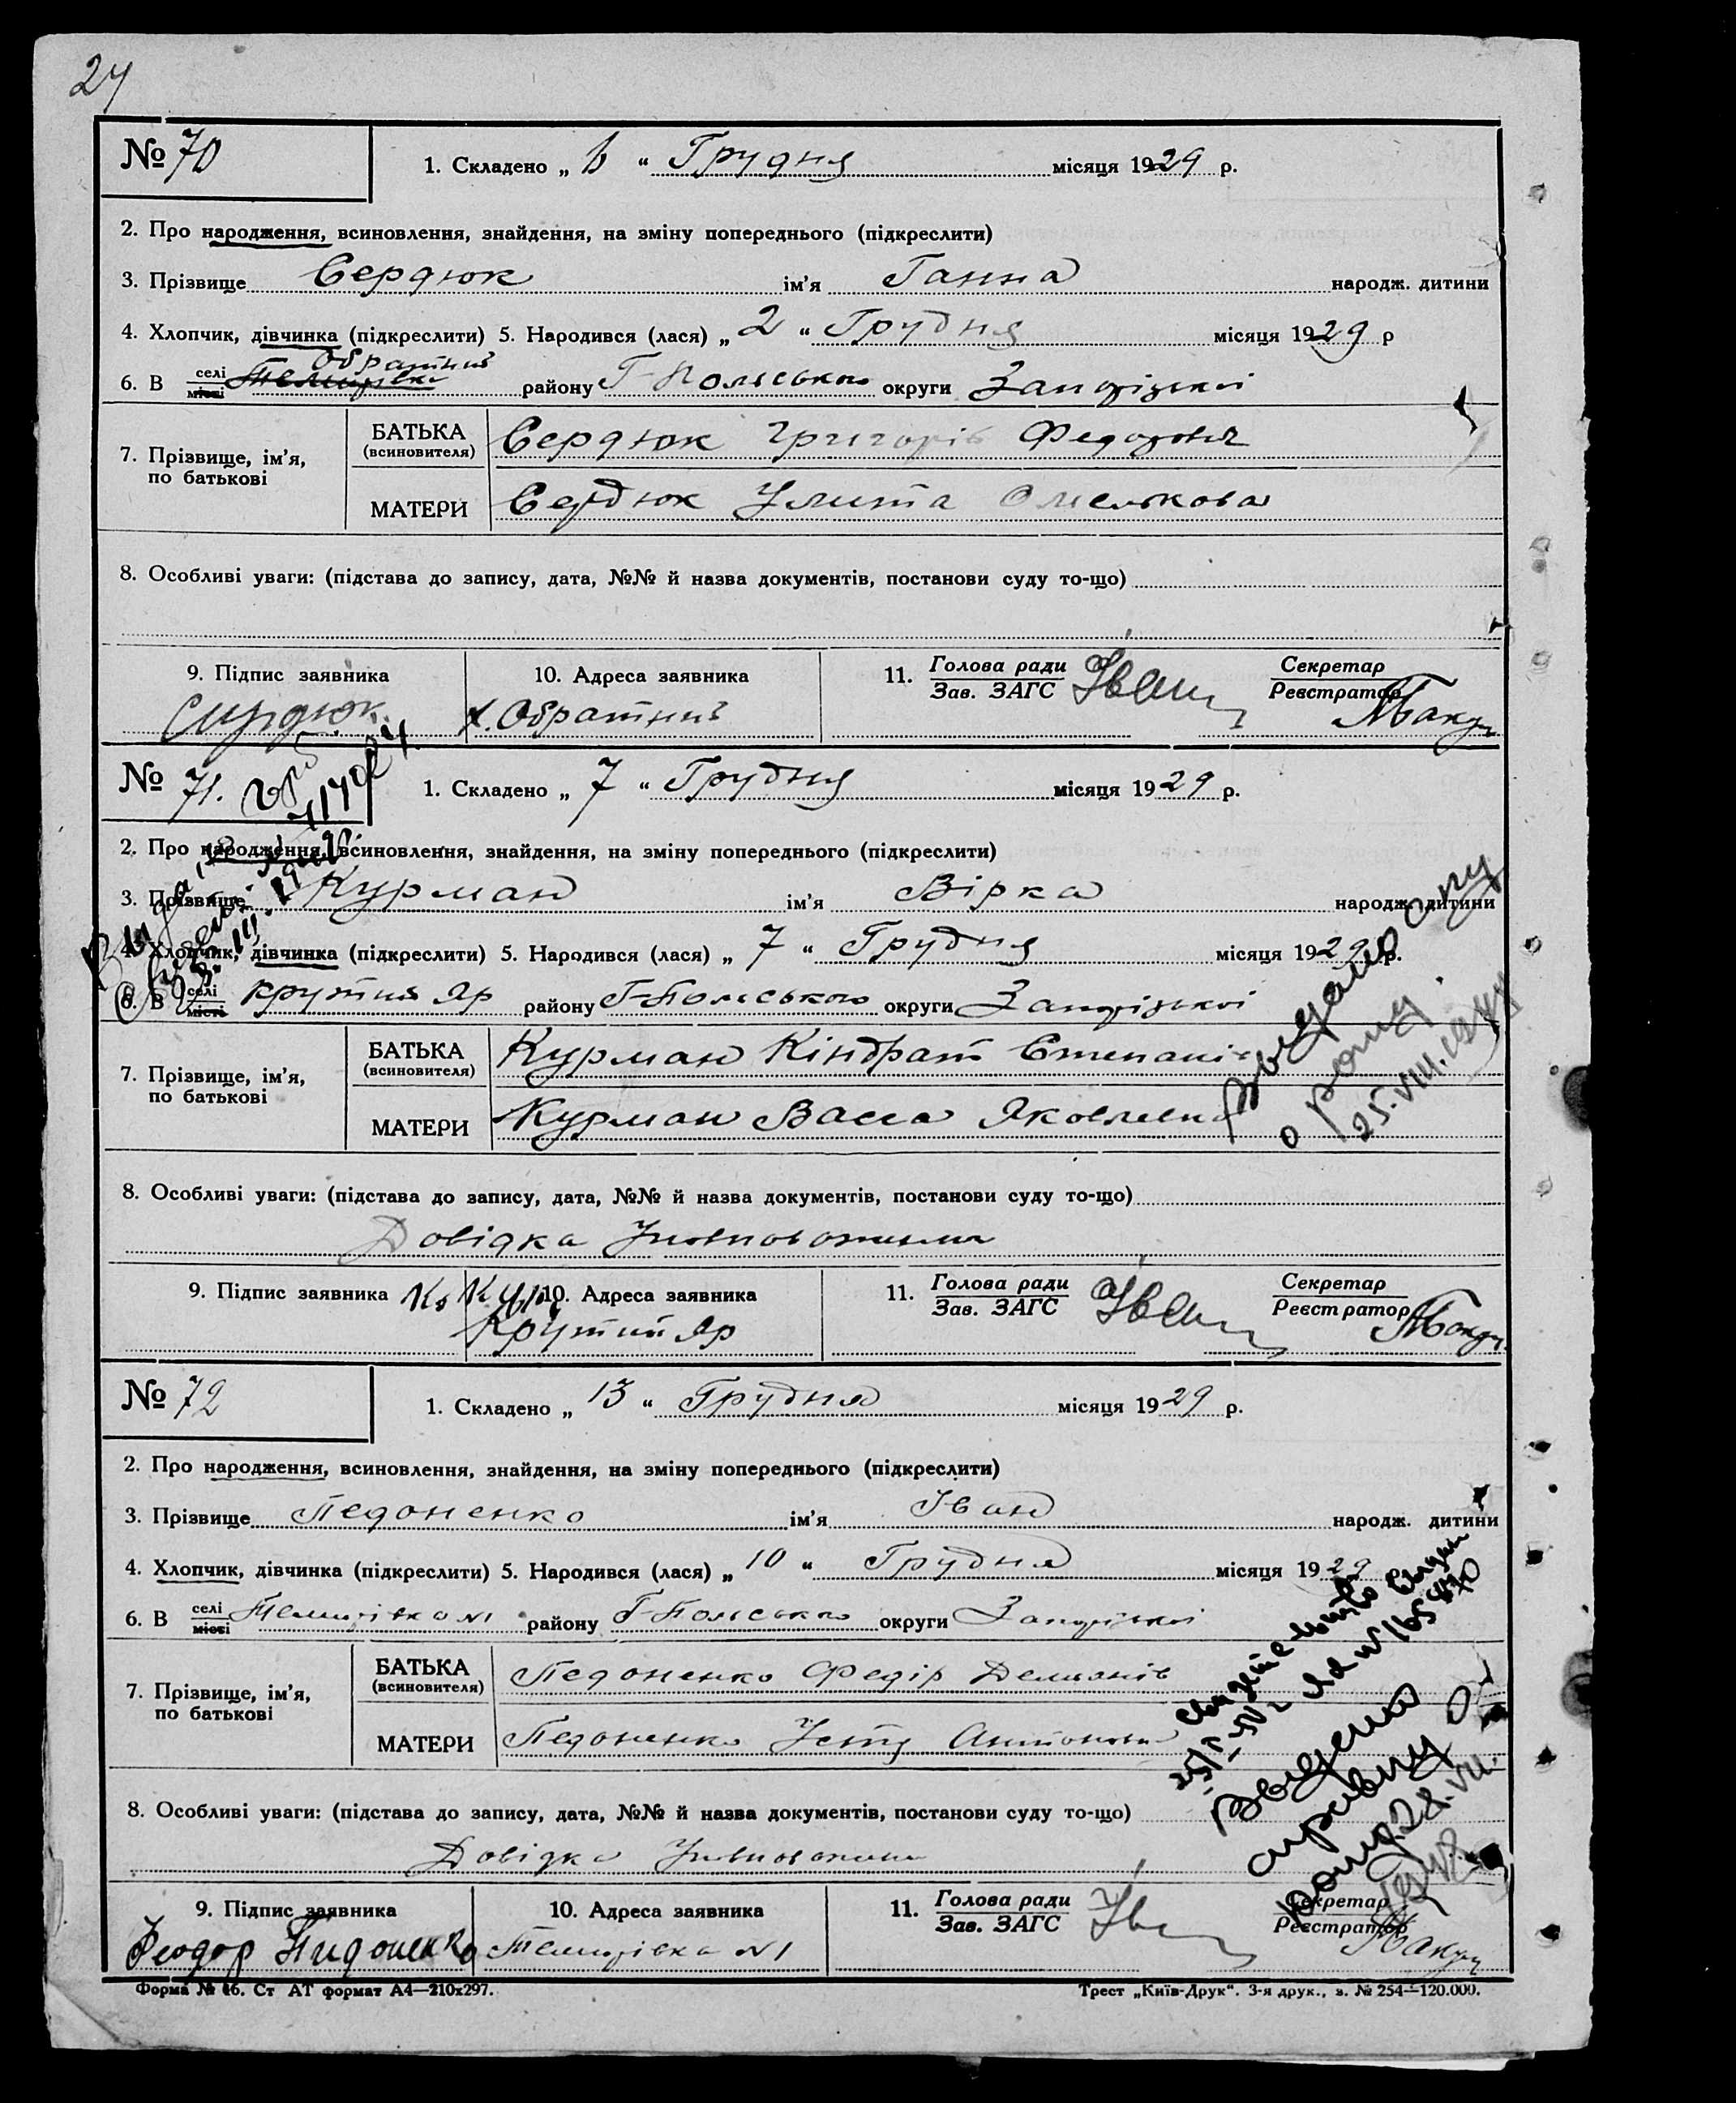 24
№ 70
1. Складено „ 6 “ Грудня місяця 1929 р.
2. Про народження, всиновлення, знайдення, на зміну попереднього (підкреслити)
3. Прізвище Сердюк ім'я Ганна народж. дитини
4. Хлопчик, дівчинка (підкреслити) 5. Народився (лася) „ 2 “ Грудня місяця 1929 р
Обратний
6. В селі місті Темирівка району Г-Польського округи Запорізької
7. Прізвище, ім'я, по батькові
БАТЬКА (всиновителя) Сердюк Григорів Федорович
МАТЕРИ Сердюк Улита Омелькова
8. Особливі уваги: (підстава до запису, дата, №№ й назва документів, постанови суду то-що)
9. Підпис заявника 10. Адреса заявника 11. Голова ради Зав. ЗАГС Секретар Реєстратор
Сирдюк х. Обратний
№ 71.
1. Складено „ 7 “ Грудня місяця 1929 р.
2. Про народження, всиновлення, знайдення, на зміну попереднього (підкреслити)
3. Прізвище Курман ім'я Вірка народж. дитини
4. Хлопчик, дівчинка (підкреслити) 5. Народився (лася) „ 7 “ Грудня місяця 1929 р.
6. В селі місті Крутий Яр району Г-Польського округи Запорізької
7. Прізвище, ім'я, по батькові
БАТЬКА (всиновителя) Курман Кіндрат Степанів
МАТЕРИ Курман Васса Яковлевна
8. Особливі уваги: (підстава до запису, дата, №№ й назва документів, постанови суду то-що)
Довідка
9. Підпис заявника 10. Адреса заявника 11. Голова ради Зав. ЗАГС Секретар Реєстратор
Крутий Яр
№ 72
1. Складено „ 13 “ Грудня місяця 1929 р.
2. Про народження, всиновлення, знайдення, на зміну попереднього (підкреслити)
3. Прізвище Педоненко ім'я Іван народж. дитини
4. Хлопчик, дівчинка (підкреслити) 5. Народився (лася) „ 10 “ Грудня місяця 1929 р.
6. В селі місті Темирівка N1 району Г-Польського округи Запорізької
7. Прізвище, ім'я, по батькові
БАТЬКА (всиновителя) Педоненко Федір Демянів
МАТЕРИ Педоненко Антонова
8. Особливі уваги: (підстава до запису, дата, №№ й назва документів, постанови суду то-що)
Довідка
9. Підпис заявника 10. Адреса заявника 11. Голова ради Зав. ЗАГС Секретар Реєстратор
Феодор Пидоненко Темирівка N1
Форма № 16. Ст АТ формат А4—210х297. Трест „Київ-Друк“. 3-я друк., з. № 254—120.000.